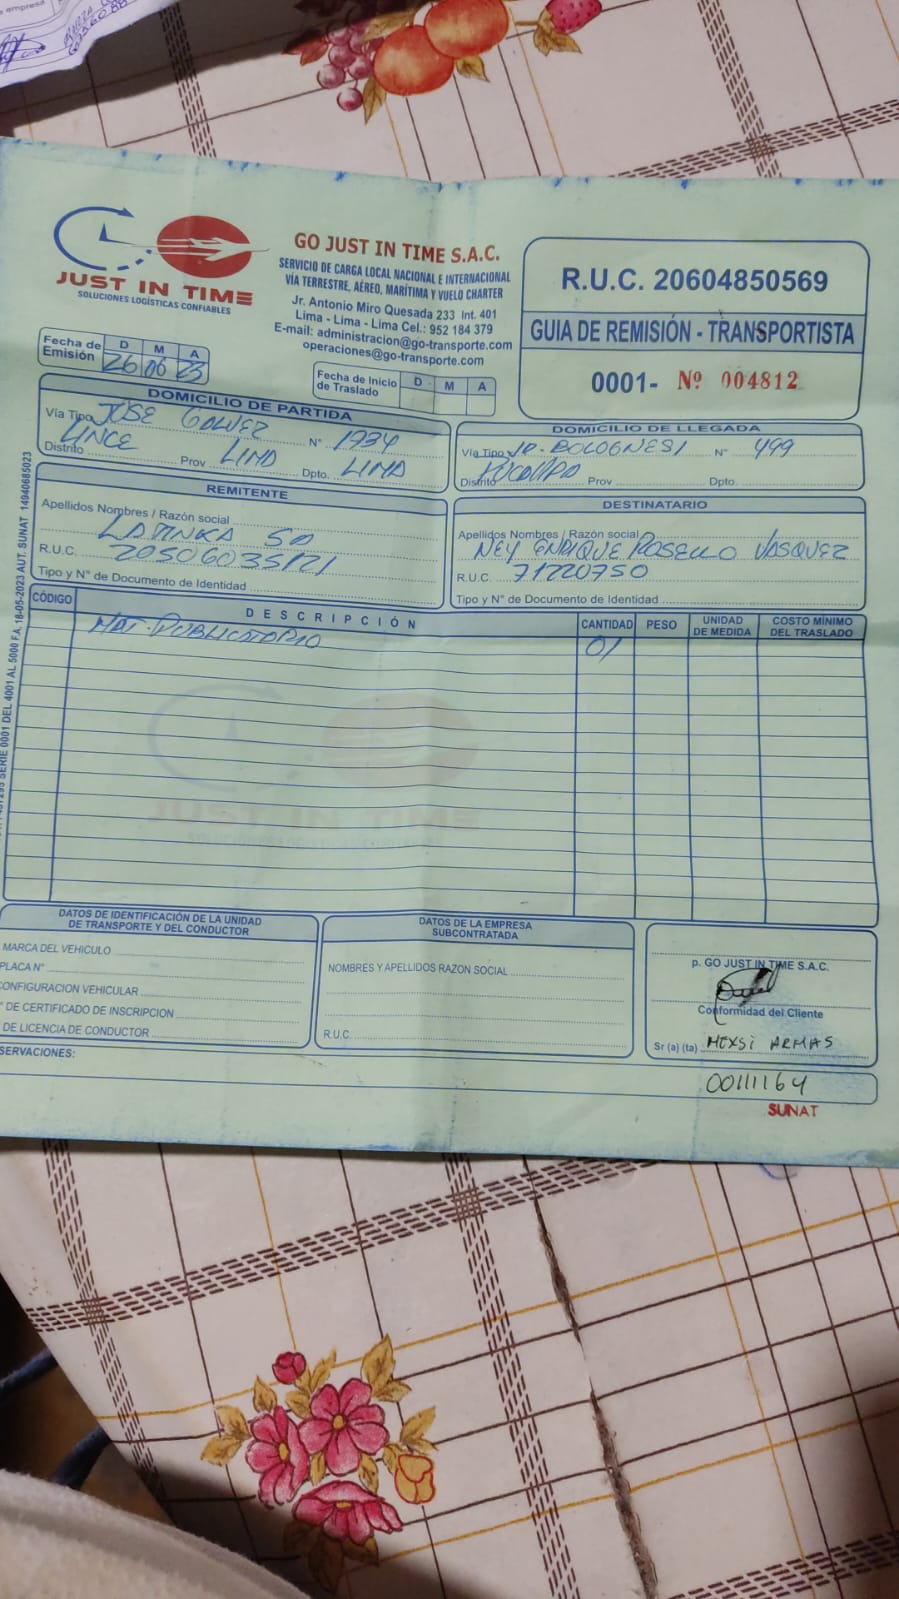 empresa
JUST IN TIME
SOLUCIONES LOGÍSTICAS CONFIABLES
GO JUST IN TIME S.A.C.
SERVICIO DE CARGA LOCAL NACIONAL E INTERNACIONAL
VÍA TERRESTRE, AÉREO, MARÍTIMA Y VUELO CHARTER
Jr. Antonio Miro Quesada 233 Int. 401
Lima - Lima - Lima Cel.: 952 184 379
E-mail: administracion@go-transporte.com
operaciones@go-transporte.com
R.U.C. 20604850569
GUIA DE REMISIÓN - TRANSPORTISTA
0001- Nº 004812
Fecha de Emisión D M A
26 06 23
Fecha de Inicio de Traslado D M A
DOMICILIO DE PARTIDA
Vía Tipo JOSE GALVEZ N° 1934
Distrito LINCE Prov LIMA Dpto. LIMA
DOMICILIO DE LLEGADA
Vía Tipo JR. BOLOGNESI N° 499
Distrito PUCALLPA Prov Dpto.
REMITENTE
Apellidos Nombres / Razón social
LA TINKA SA
R.U.C. 20506035121
Tipo y N° de Documento de Identidad
DESTINATARIO
Apellidos Nombres / Razón social
NEY ENRIQUE ROSELLO VASQUEZ
R.U.C. 71220750
Tipo y N° de Documento de Identidad
CÓDIGO DESCRIPCIÓN CANTIDAD PESO UNIDAD DE MEDIDA COSTO MÍNIMO DEL TRASLADO
MAT. PUBLICITARIO 01
JUST IN TIME
SERIE 0001 DEL 4001 AL 5000 F.A. 18-05-2023 AUT. SUNAT 14940685023
DATOS DE IDENTIFICACIÓN DE LA UNIDAD
DE TRANSPORTE Y DEL CONDUCTOR
MARCA DEL VEHICULO
PLACA N°
CONFIGURACION VEHICULAR
° DE CERTIFICADO DE INSCRIPCION
DE LICENCIA DE CONDUCTOR
DATOS DE LA EMPRESA
SUBCONTRATADA
NOMBRES Y APELLIDOS RAZON SOCIAL
R.U.C.
p. GO JUST IN TIME S.A.C.
Conformidad del Cliente
Sr (a) (ta) MEXSI ARMAS
SERVACIONES:
00111164
SUNAT